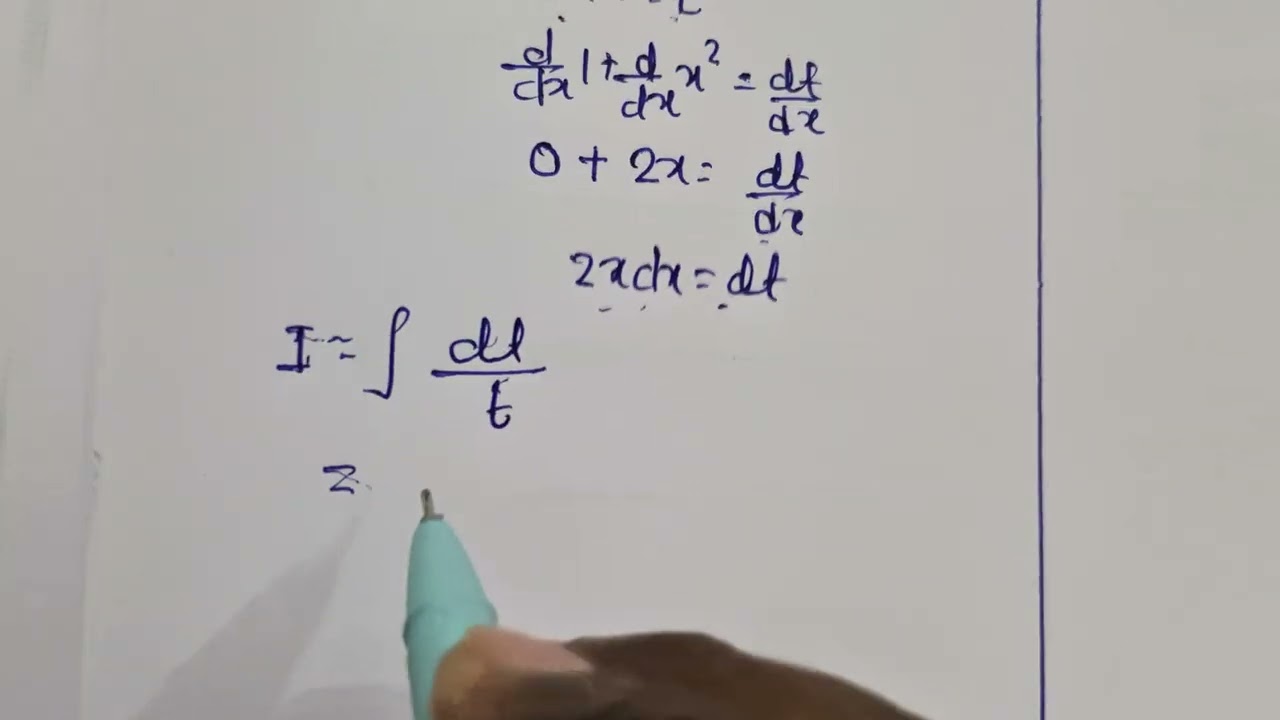 d/dx 1 + d/dx x² = dt/dx
0 + 2x = dt/dx
2x dx = dt
I = ∫ dt/t
=